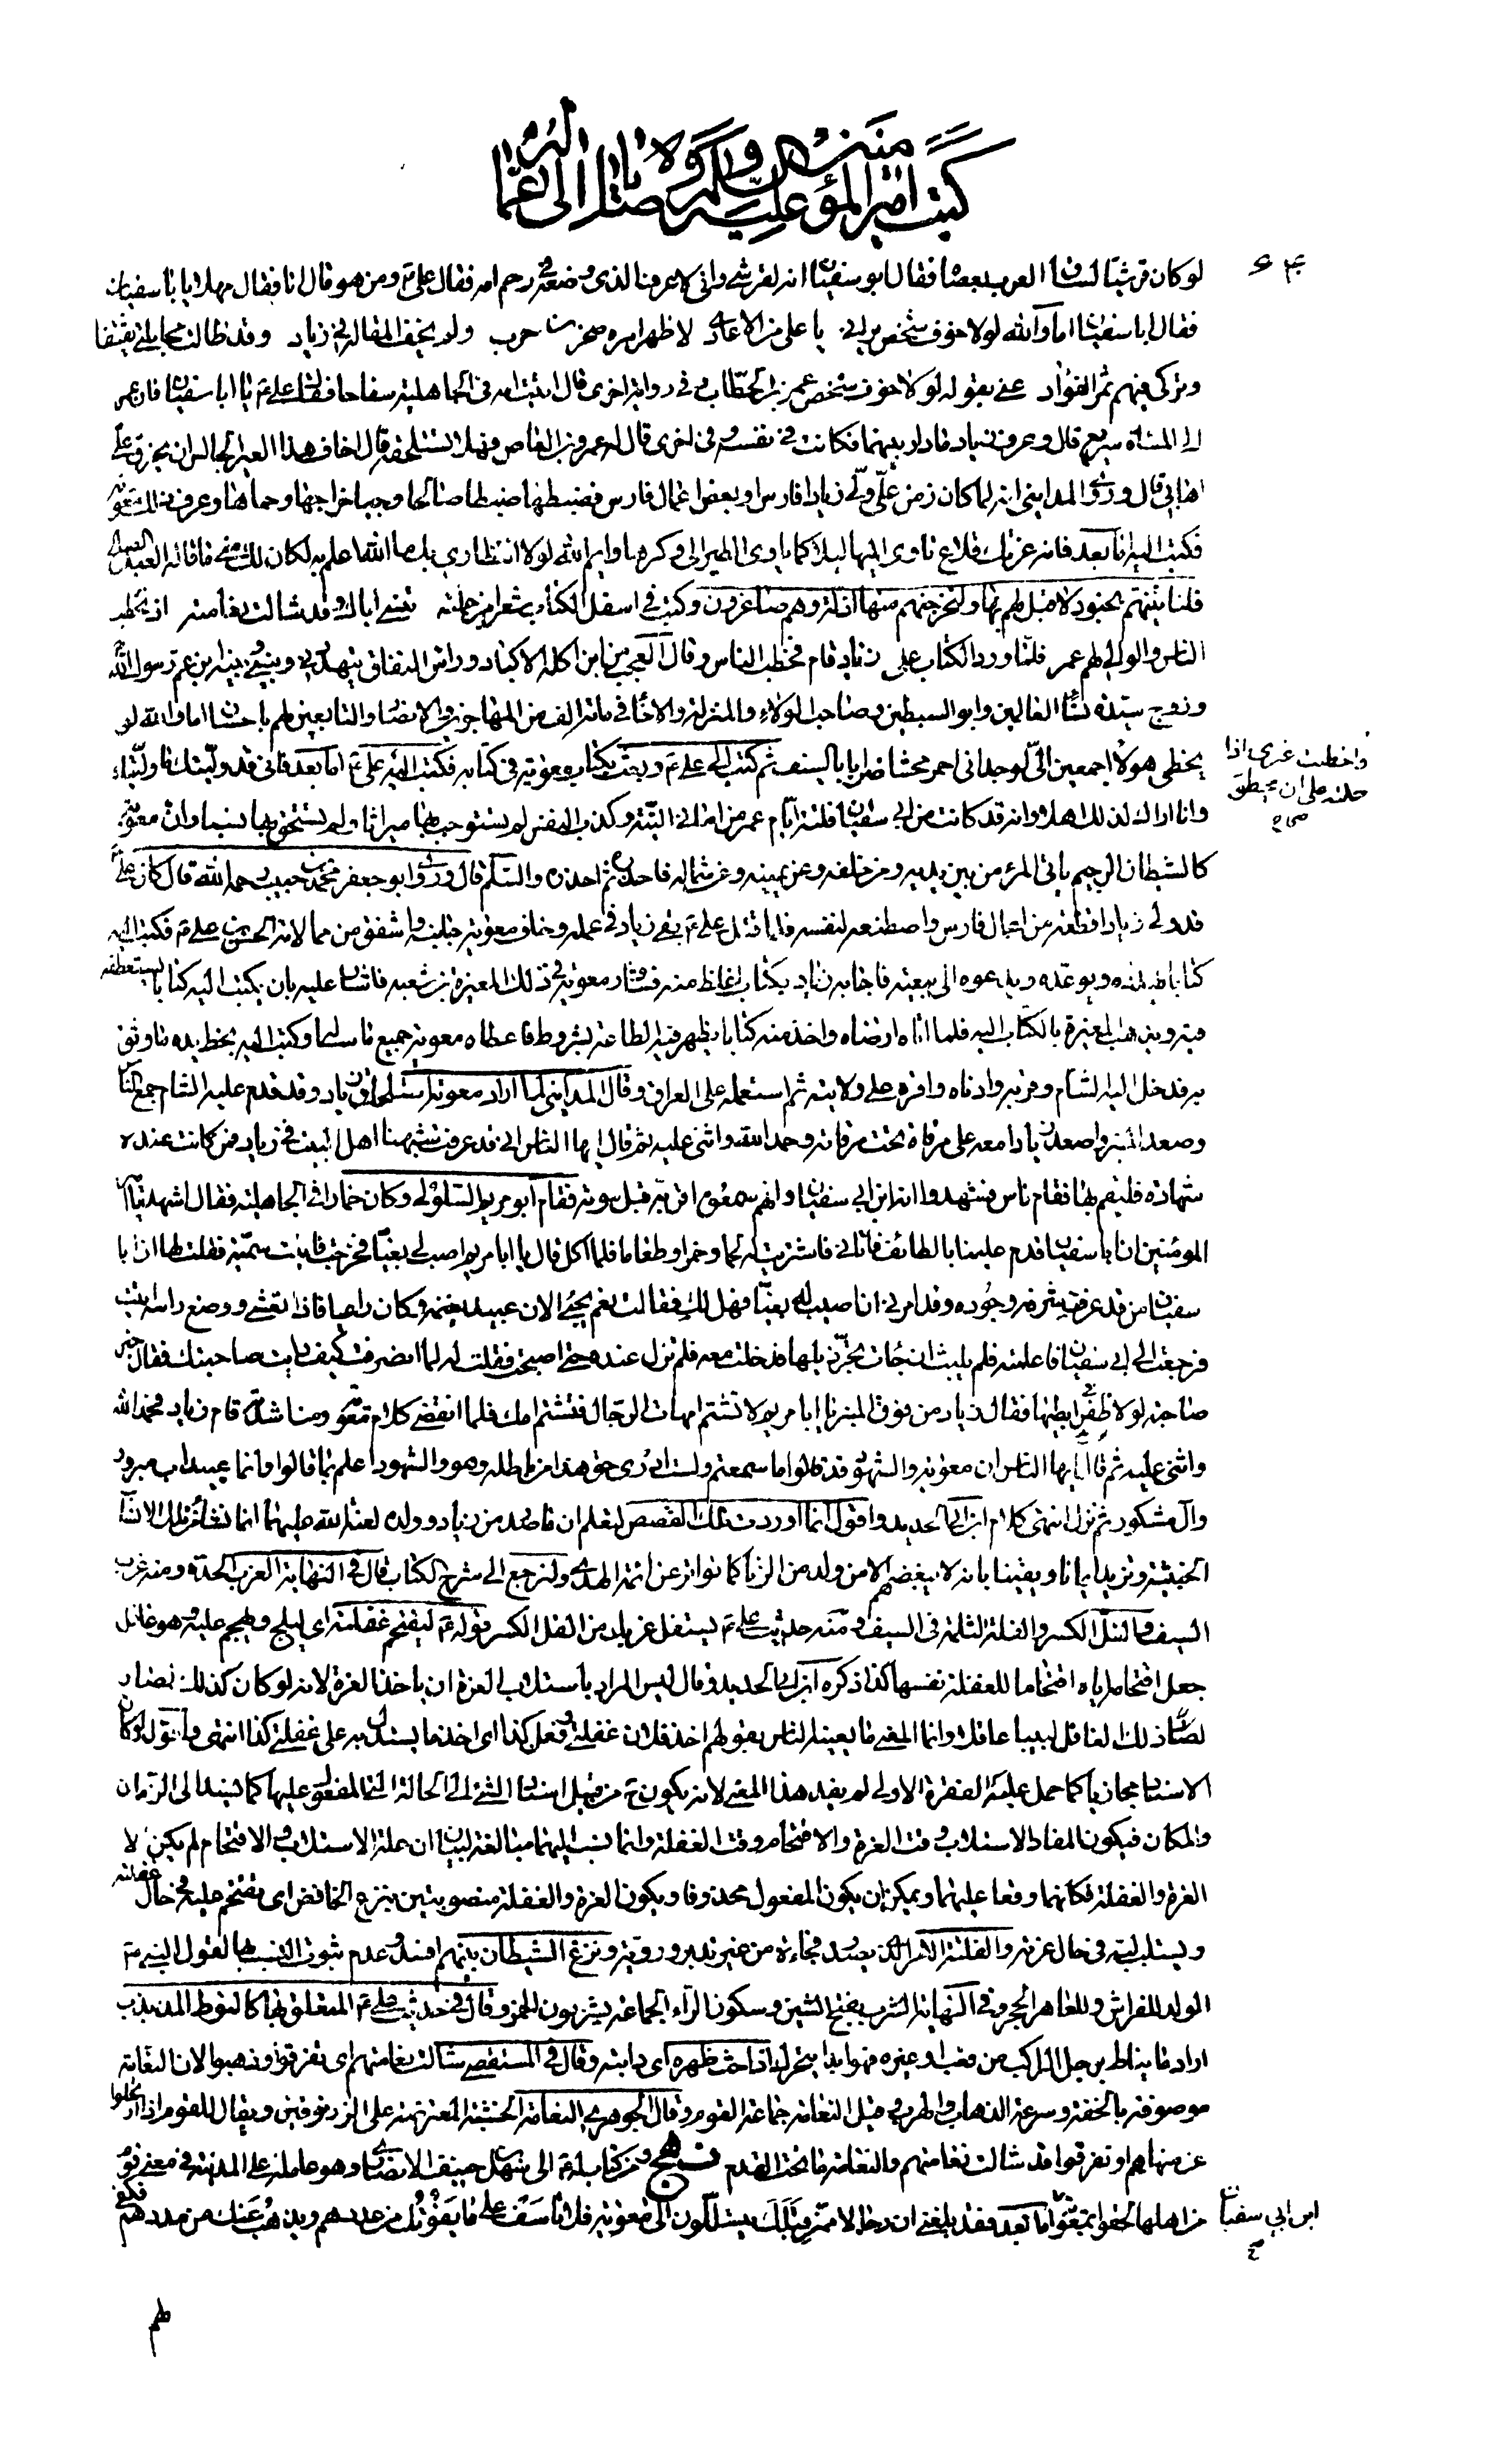 كتب امير المؤمنين صلوات الله عليه ووصاياه الى عماله
لو كان قرشيا لساق العرب بعصاه فقال ابو سفيان انه لقرشي واني لاعرف الذي وضعه في رحم امه فقال علي ع ومن هو قال انا فقال مهلا يا با سفيان
فقال ابا سفيان اما والله لولا خوف شخص يراني يا علي من الاعادي لاظهر امره صخر بن حرب ولم يخف المقالة في زياد وقد طالت مجاملتي ثقيفا
وتركي فيهم ثمر الفؤاد عنى بقوله لولا خوف شخص عمر بن الخطاب وفي رواية اخرى قال اتيت امه في الجاهلية سفاحا فقال علي ع مه يا ابا سفيان فان عمر
الى المساءة سريع قال وعرف زياد ما دار بينهما فكانت في نفسه وفي اخرى قال له عمرو بن العاص فهلا تستلحقه قال اخاف هذا العير الجالس ان يخرق علي
اهابي قال وروى المدايني انه لما كان زمن علي ولى زيادا فارس او بعض اعمال فارس فضبطها ضبطا صالحا وجبا خراجها وحماها وعرف ذلك معوية
فكتب اليه اما بعد فانه غرتك قلاع تاوى اليها ليلا كما ياوى الطير الى وكرها وايم الله لولا انتظاري بك ما الله اعلم به لكان لك مني ما قاله العبد الصالح
فلناتينهم بجنود لا قبل لهم بها ولنخرجنهم منها اذلة وهم صاغرون وكتب في اسفل الكتاب شعرا من جملته تنسى اباك وقد شالت نعامته اذ يخطب
الناس والوالي لهم عمر فلما ورد الكتاب على زياد قام فخطب الناس وقال العجب من ابن اكلة الاكباد وراس النفاق يتهددني وبيني وبينه ابن عم رسول الله
وزوج سيدة نساء العالمين وابو السبطين وصاحب الولاء والمنزلة والاخاء في مائة الف من المهاجرين والانصار والتابعين لهم باحسان اما والله لو
تخطى هولاء اجمعين الي لوجدني احمر مخشا ضرابا بالسيف ثم كتب الى علي ع وبعث بكتاب معوية في كتابه فكتب اليه علي ع اما بعد فاني قد وليتك ما وليتك
وانا اراك لذلك اهلا وانه قد كانت من ابي سفيان فلتة ايام عمر من اماني التيه وكذب النفس لم تستوجب بها ميراثا ولم تستحق بها نسبا وان معوية
كالشيطان الرجيم ياتي المرء من بين يديه ومن خلفه وعن يمينه وعن شماله فاحذره ثم احذره والسلم قال وروى ابو جعفر محمد بن حبيب رحمه الله قال كان علي
قد ولى زيادا قطعة من اعمال فارس واصطنعه لنفسه فلما قتل علي ع بقي زياد في عمله وخاف معوية جانبه واشفق من ممالاته الحسن بن علي ع فكتب اليه
كتابا يهدده ويوعده ويدعوه الى بيعته فاجابه زياد بكتاب اغلظ منه فشاور معوية في ذلك المغيرة بن شعبة فاشار عليه بان يكتب اليه كتابا يستعطفه
فيه ويذهب المغيرة بالكتاب اليه فلما اتاه ارضاه واخذ منه كتابا يظهر فيه الطاعة بشروط فاعطاه معوية جميع ما ساله وكتب اليه بخط يده ما وثق
به فدخل اليه الشام وقربه وادناه واقره على ولايته ثم استعمله على العراق وقال المدايني لما اراد معوية استلحاق زياد وقد قدم عليه الشام جمع الناس
وصعد المنبر واصعد زيادا معه على مرقاة تحت مرقاته وحمد الله واثنى عليه ثم قال ايها الناس اني قد عرفت شبهنا اهل البيت في زياد فمن كانت عنده
شهادة فليقم بها فقام ناس فشهدوا انه ابن ابي سفيان وانهم سمعوه اقر به قبل موته فقام ابو مريم السلولي وكان خمارا في الجاهلية فقال اشهد يا امير
المؤمنين ان ابا سفيان قدم علينا بالطائف فاتاني فاشتريت له لحما وخمرا وطعاما فلما اكل قال يا ابا مريم اصب لي بغيا فخرجت فاتيت سمية فقلت لها ان ابا
سفيان من قد عرفت شرفه وجوده وقد امرني ان اصيب له بغيا فهل لك فقالت نعم يجئ الان عبيد بغنمه وكان راعيا فاذا تعشى ووضع راسه اتيته
فرجعت الى ابي سفيان فاعلمته فلم يلبث ان جاءت تجر ذيلها فدخلت معه فلم تزل عنده حتى اصبحت فقلت له لما انصرفت كيف رايت صاحبتك فقال خير
صاحبة لولا ذفر ابطيها فقال زياد من فوق المنبر يا ابا مريم لا تشتم امهات الرجال فتشتم امك فلما انقضى كلام معوية ومناشدته قام زياد فحمد الله
واثنى عليه ثم قال ايها الناس ان معوية والشهود قد قالوا ما سمعتم ولست ادري حق هذا من باطله وهو والشهود اعلم بما قالوا وانما عبيد اب مبرور
وال مشكور ثم نزل انتهى كلام ابن ابي الحديد واقول انما اوردت تلك القصص لتعلم ان ما صدر من زياد وولده لعنة الله عليهما انما نشا من تلك الانساب
الخبيثة وتزيد ايمانا ويقينا بانه لا يبغضهم الا من ولد من الزنا كما تواتر عن ائمة الهدى ولنرجع الى شرح الكتاب قال في النهاية الغرب الحدة ومنه غرب
السيف والفل الكسر والفلة الثلمة في السيف ومنه حديث علي ع يستفل غربك من الفل الكسر قوله ع ليقتحم غفلته اي ليلج ويهجم عليه وهو غافل
جعل اقتحامه اياه اقتحاما للغفلة نفسها كذا ذكره ابن ابي الحديد وقال ليس المراد باستلاب الغرة ان ياخذ الغرة لانه لو كان كذلك لصار
لصار ذلك الغافل لبيبا عاقلا وانما المعنى ما يعنيه الناس بقولهم اخذ فلان غفلتي وفعل كذا اي اخذ ما يستدل به على غفلتي كذا انتهى واقول لو كان
الاسناد مجازيا كما حمل عليه الفقرة الاولى لم يفد هذا المعنى لانه يكون ح من قبيل اسناد الشئ الى الحالة التي المفعول عليها كما يسند الى الزمان
والمكان فيكون المفاد الاستلاب وقت الغرة والاقتحام وقت الغفلة وانما نسب اليهما مبالغة لبيان ان علة الاستلاب والاقتحام لم يكن الا
الغرة والغفلة فكانهما وقعا عليهما ويمكن ان يكون المفعول محذوفا ويكون الغرة والغفلة منصوبتين بنزع الخافض اي يقتحم عليه في حال غفلته
ويستلب لبه في حال غرته والفلتة الامر الذي يصدر فجاءة من غير تدبر وروية ونزغ الشيطان بينهم افسد وعدم ثبوت النسب بها لقول النبي ص
الولد للفراش وللعاهر الحجر وفي النهاية الشرب بفتح الشين وسكون الراء الجماعة يشربون الخمر وقال في حديث علي ع المتعلق بها كالنوط المذبذب
اراد ما يناط برحل الراكب من قعب او غيره فهو ابدا يتحرك اذا حث ظهره اي دابته وقال في المستقصى شالت نعامتهم اي تفرقوا وذهبوا لان النعامة
موصوفة بالخفة وسرعة الذهاب والهرب وقيل النعامة جماعة القوم وقال الجوهري النعامة الخشبة المعترضة على الزرنوقين ويقال للقوم اذا ارتحلوا
عن منهلهم او تفرقوا قد شالت نعامتهم والنعامة ما تحت القدم نهج ومن كتاب له ع الى سهل بن حنيف الانصاري وهو عامله على المدينة في معنى قوم
من اهلها لحقوا بمعوية اما بعد فقد بلغني ان رجالا ممن قبلك يتسللون الى معوية فلا تاسف على ما يفوتك من عددهم ويذهب عنك من مددهم فكفى
لهم
واخطلت غرى اذا
ابن ابي سفيان